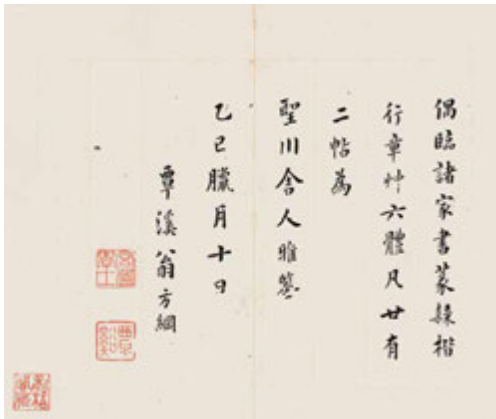 偶臨諸家書篆隸楷
行章艸六體凡廿有
二帖為
聖川舍人雅鑒
乙巳臘月十日
覃溪翁方綱
覃谿